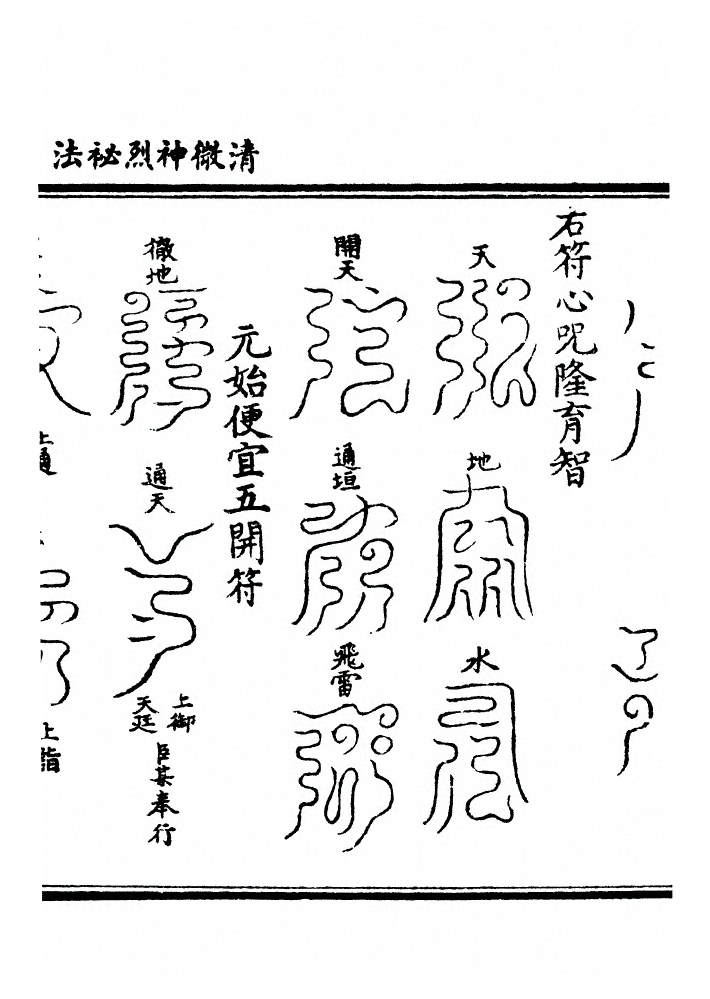 清微神烈祕法
右符心咒隆育智
天
地
水
開天
通垣
飛雷
元始便宜五開符
徹地
通天
上御
天廷
臣某奉行
上通
上詣